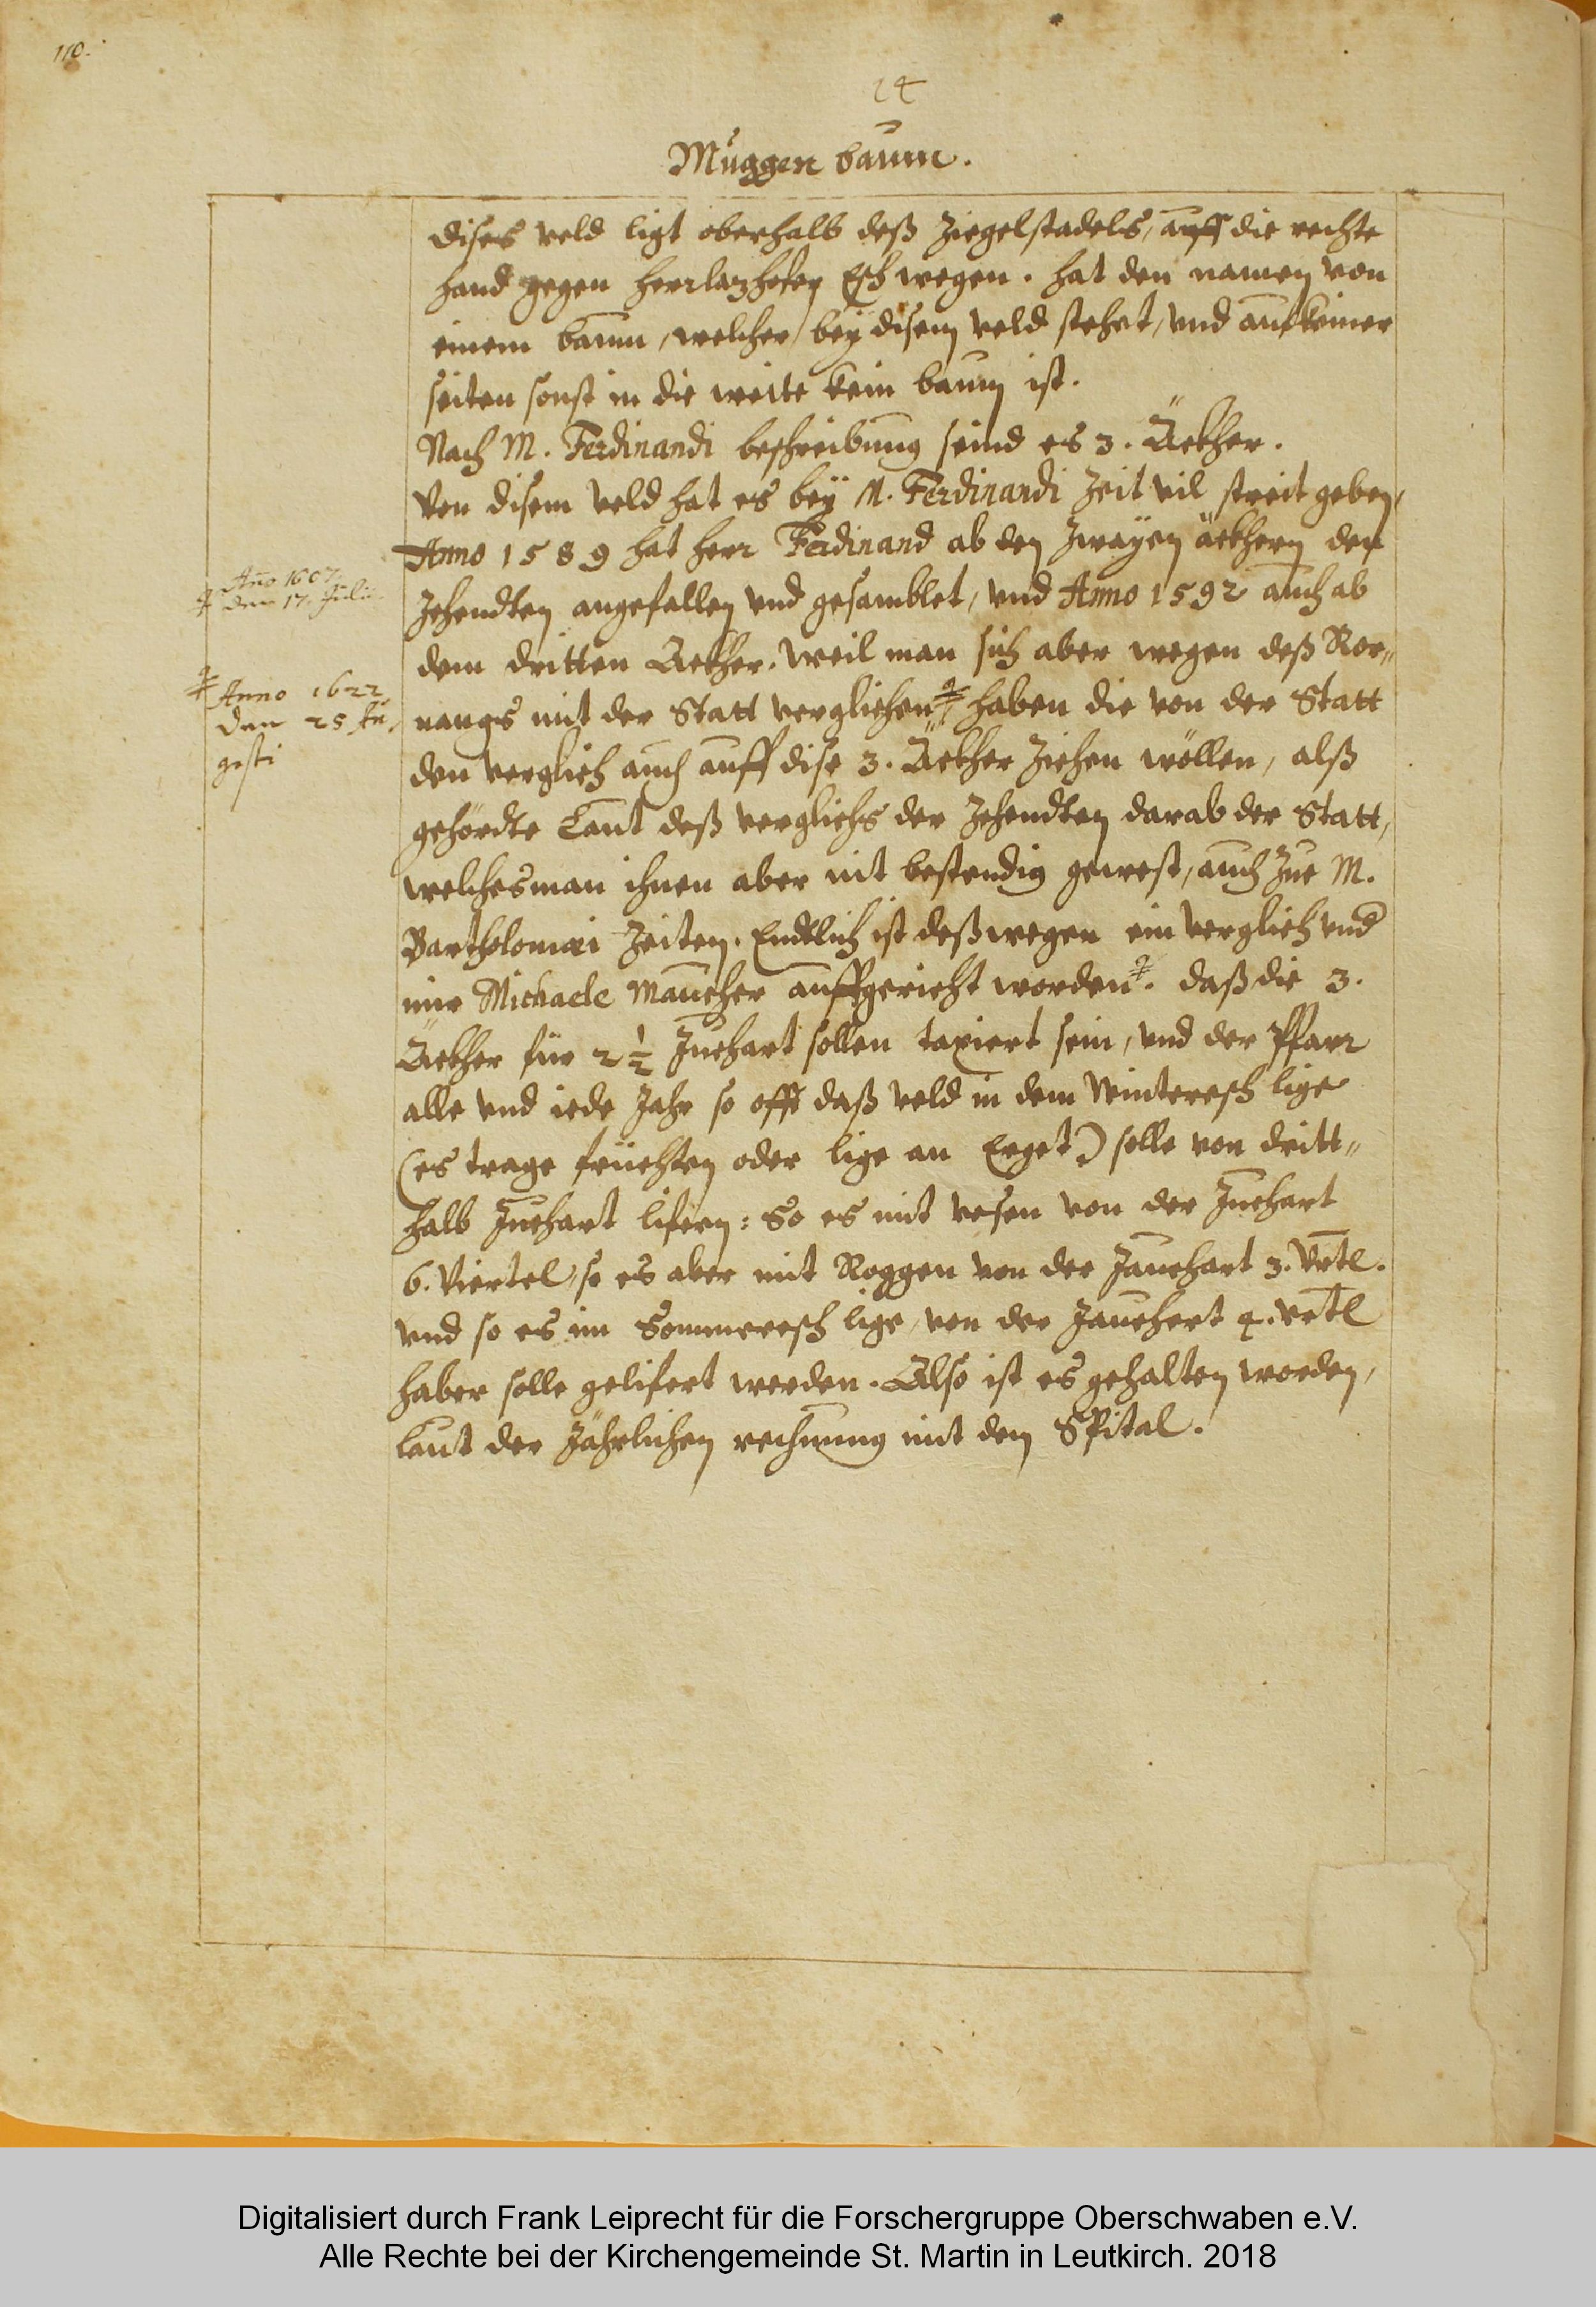 110.
14
Muggen baum.
dises veld ligt oberhalb deß Ziegelstadels, auff die rechte
hand gegen Herrlazhofen Esch wegen. hat den namen von
einem baum, welcher bey disem veld stehet, vnd auf keiner
seiten sonst in die weite kein baum ist.
Nach M. Ferdinandi beschreibung seind es 3. Äckher.
Von disem veld hat es bey M. Ferdinandi Zeit vil streit geben,
Anno 1589 hat herr Ferdinand ab den zwayen äckhern den
Zehendten angefallen vnd gesamblet, vnd Anno 1592 auch ab
dem dritten Ackher. Weil man sich aber wegen deß Ror„
nangs mit der Statt verglichen haben die von der Statt
den verglich auch auff dise 3. Äckher Ziehen wöllen, alß
gehördte Laut deß verglichs der Zehendten darab der Statt,
welches man ihnen aber nit bestendig gewest, auch Zue M.
Bartholomæi Zeiten. Endtlich ist deßwegen ein verglich vnd
mir Michaele Maucher auffgericht worden. daß die 3.
Äckher für 2 1/2 Juchart sollen taxiert sein, vnd der Pfarr
alle vnd iede Jahr so offt daß veld in dem Winteresch lige
(es trage früchten oder lige an Erget) solle von dritt„
halb Juchart lifern: So es mit vesen von der Juchart
6. Viertel, so es aber mit Roggen von der Jauchart 3. Vrtl.
vnd so es im Sommeresch lige, von der Jauchert 4. vrtl
haber solle gelifert werden. Also ist es gehalten worden,
laut der Jährlichen rechnung mit dem Spital.
Año 1607
den 17. Julii.
Anno 1622
den 25 Au„
gusti
Digitalisiert durch Frank Leiprecht für die Forschergruppe Oberschwaben e.V.
Alle Rechte bei der Kirchengemeinde St. Martin in Leutkirch. 2018